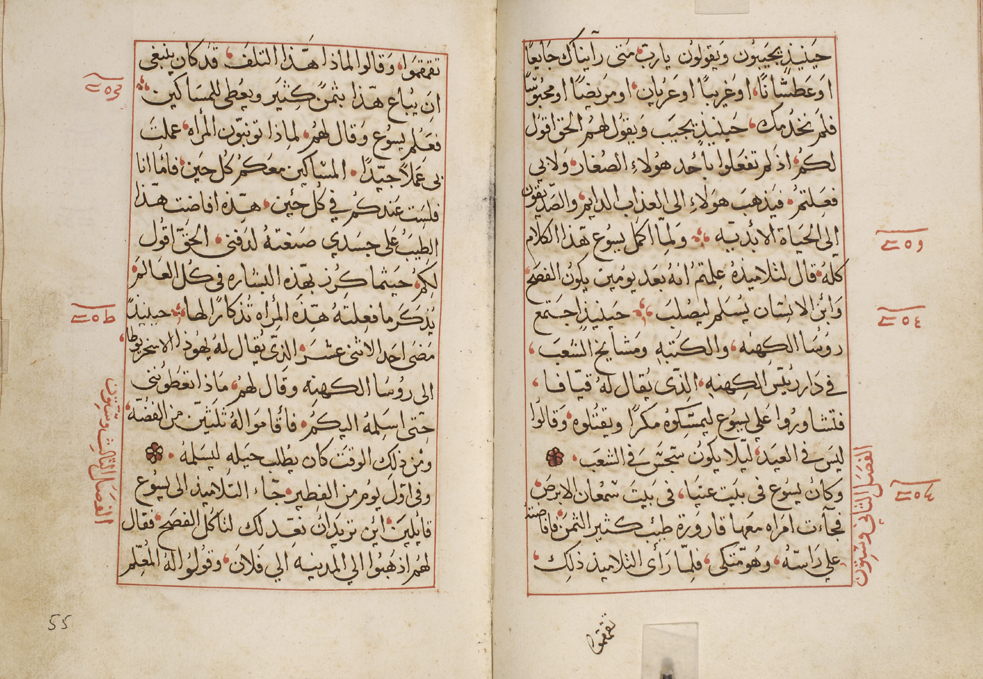 حينيذ يجيبون ويقولون يارب متى رآيناك جايعًا
اوعطشانًا، اوغريبًا اوعريان، اومريضًا اومحبوسًا
فلم نخدمك، حينيذٍ يجيب ويقول لهم الحق اقول
لكم، اذ لم تفعلوا باحد هولاءِ الصغار ولا بي
فعلتم، فيذهب هولاءِ الى العذاب الدايم، والصديقون
الى الحياة الابديه ولما اكمل يسوع هذا الكلام
كله، قال لتلاميذهُ علمتم انه بعد يومين يكون الفصح
وابن الانسان يسلم ليصلب، حينيذٍ اجتمع
روسا الكهنه، والكتبه ومشايخ الشعب،
في دار رييس الكهنه، الذي يقال لهُ قيافا،
فتشاوروا على يسوع ليمسكوه مكرًا ويقتلوه، وقالوا
ليس في العيد، ليلا يكون سجس في الشعب،
وكان يسوع في بيت عنيا، في بيت سمعان الابرص،
فجآت امراه معها قارورة طيب كثير الثمن، فافاضته
على راسه، وهو متكي، فلما رأى التلاميذ ذلك،
الفصل الثاني وستون
تقمقموا
تقمقموا، وقالوا لماذا هذا التلف، قد كان ينبغي
ان يباع هذا بثمن كثير ويعطى للمساكين
فعلم يسوع وقال لهم، لماذا توتبون المراه، عملت
بي عملاً جيدًا، المساكين معكم كل حين، فاما انا
فلست عندكم في كل حين، هذه افاضت هذا
الطيب على جسدي صنعته لدفني، الحق اقول
لكم، حيثما كرز بهذه البشاره في كل العالم،
يذكر ما فعلته هذه المراه تذكارًا لها، حينيذٍ
مضى احد الاثنى عشر، الذي يقال له يهودا الاسخريوطي
الى روسا الكهنه وقال لهم، ماذا تعطوني
حتى اسلمه اليكم، فاقاموا له ثلثين من الفضة
ومن ذلك الوقت كان يطلب حيله ليسلمه،
وفي اول يوم من الفطير، جاء التلاميذ الى يسوع
قايلين، اين تريد ان نعد لك لناكل الفصح، فقال
لهم اذهبوا الى المدينه الى فلان، وقولوا له المعلم
الفصل الثالث وستون
55